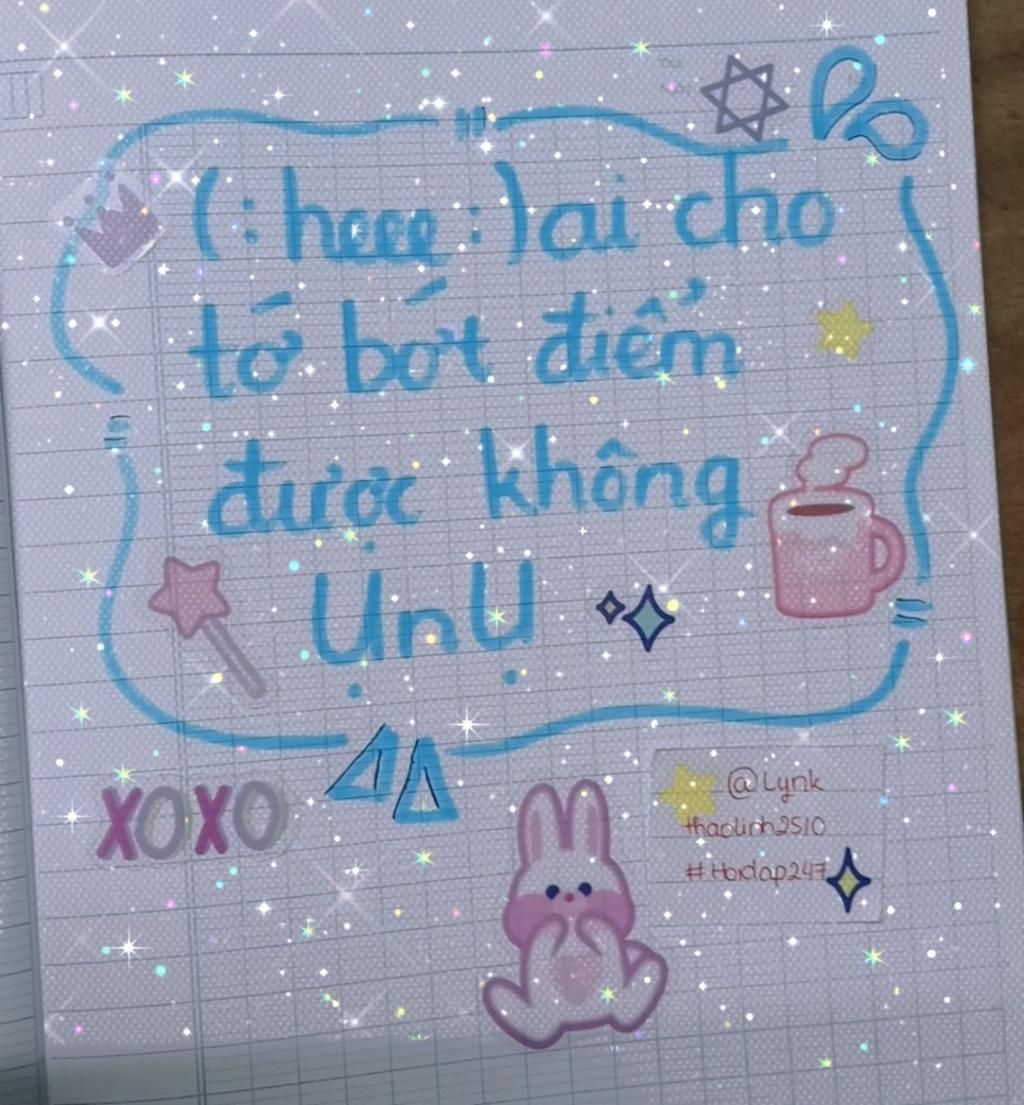 (:heee:) ai cho
tớ bớt điểm
được không
ỤnỤ
XOXO
@Lynk
thaolinh2510
#Hoidap247